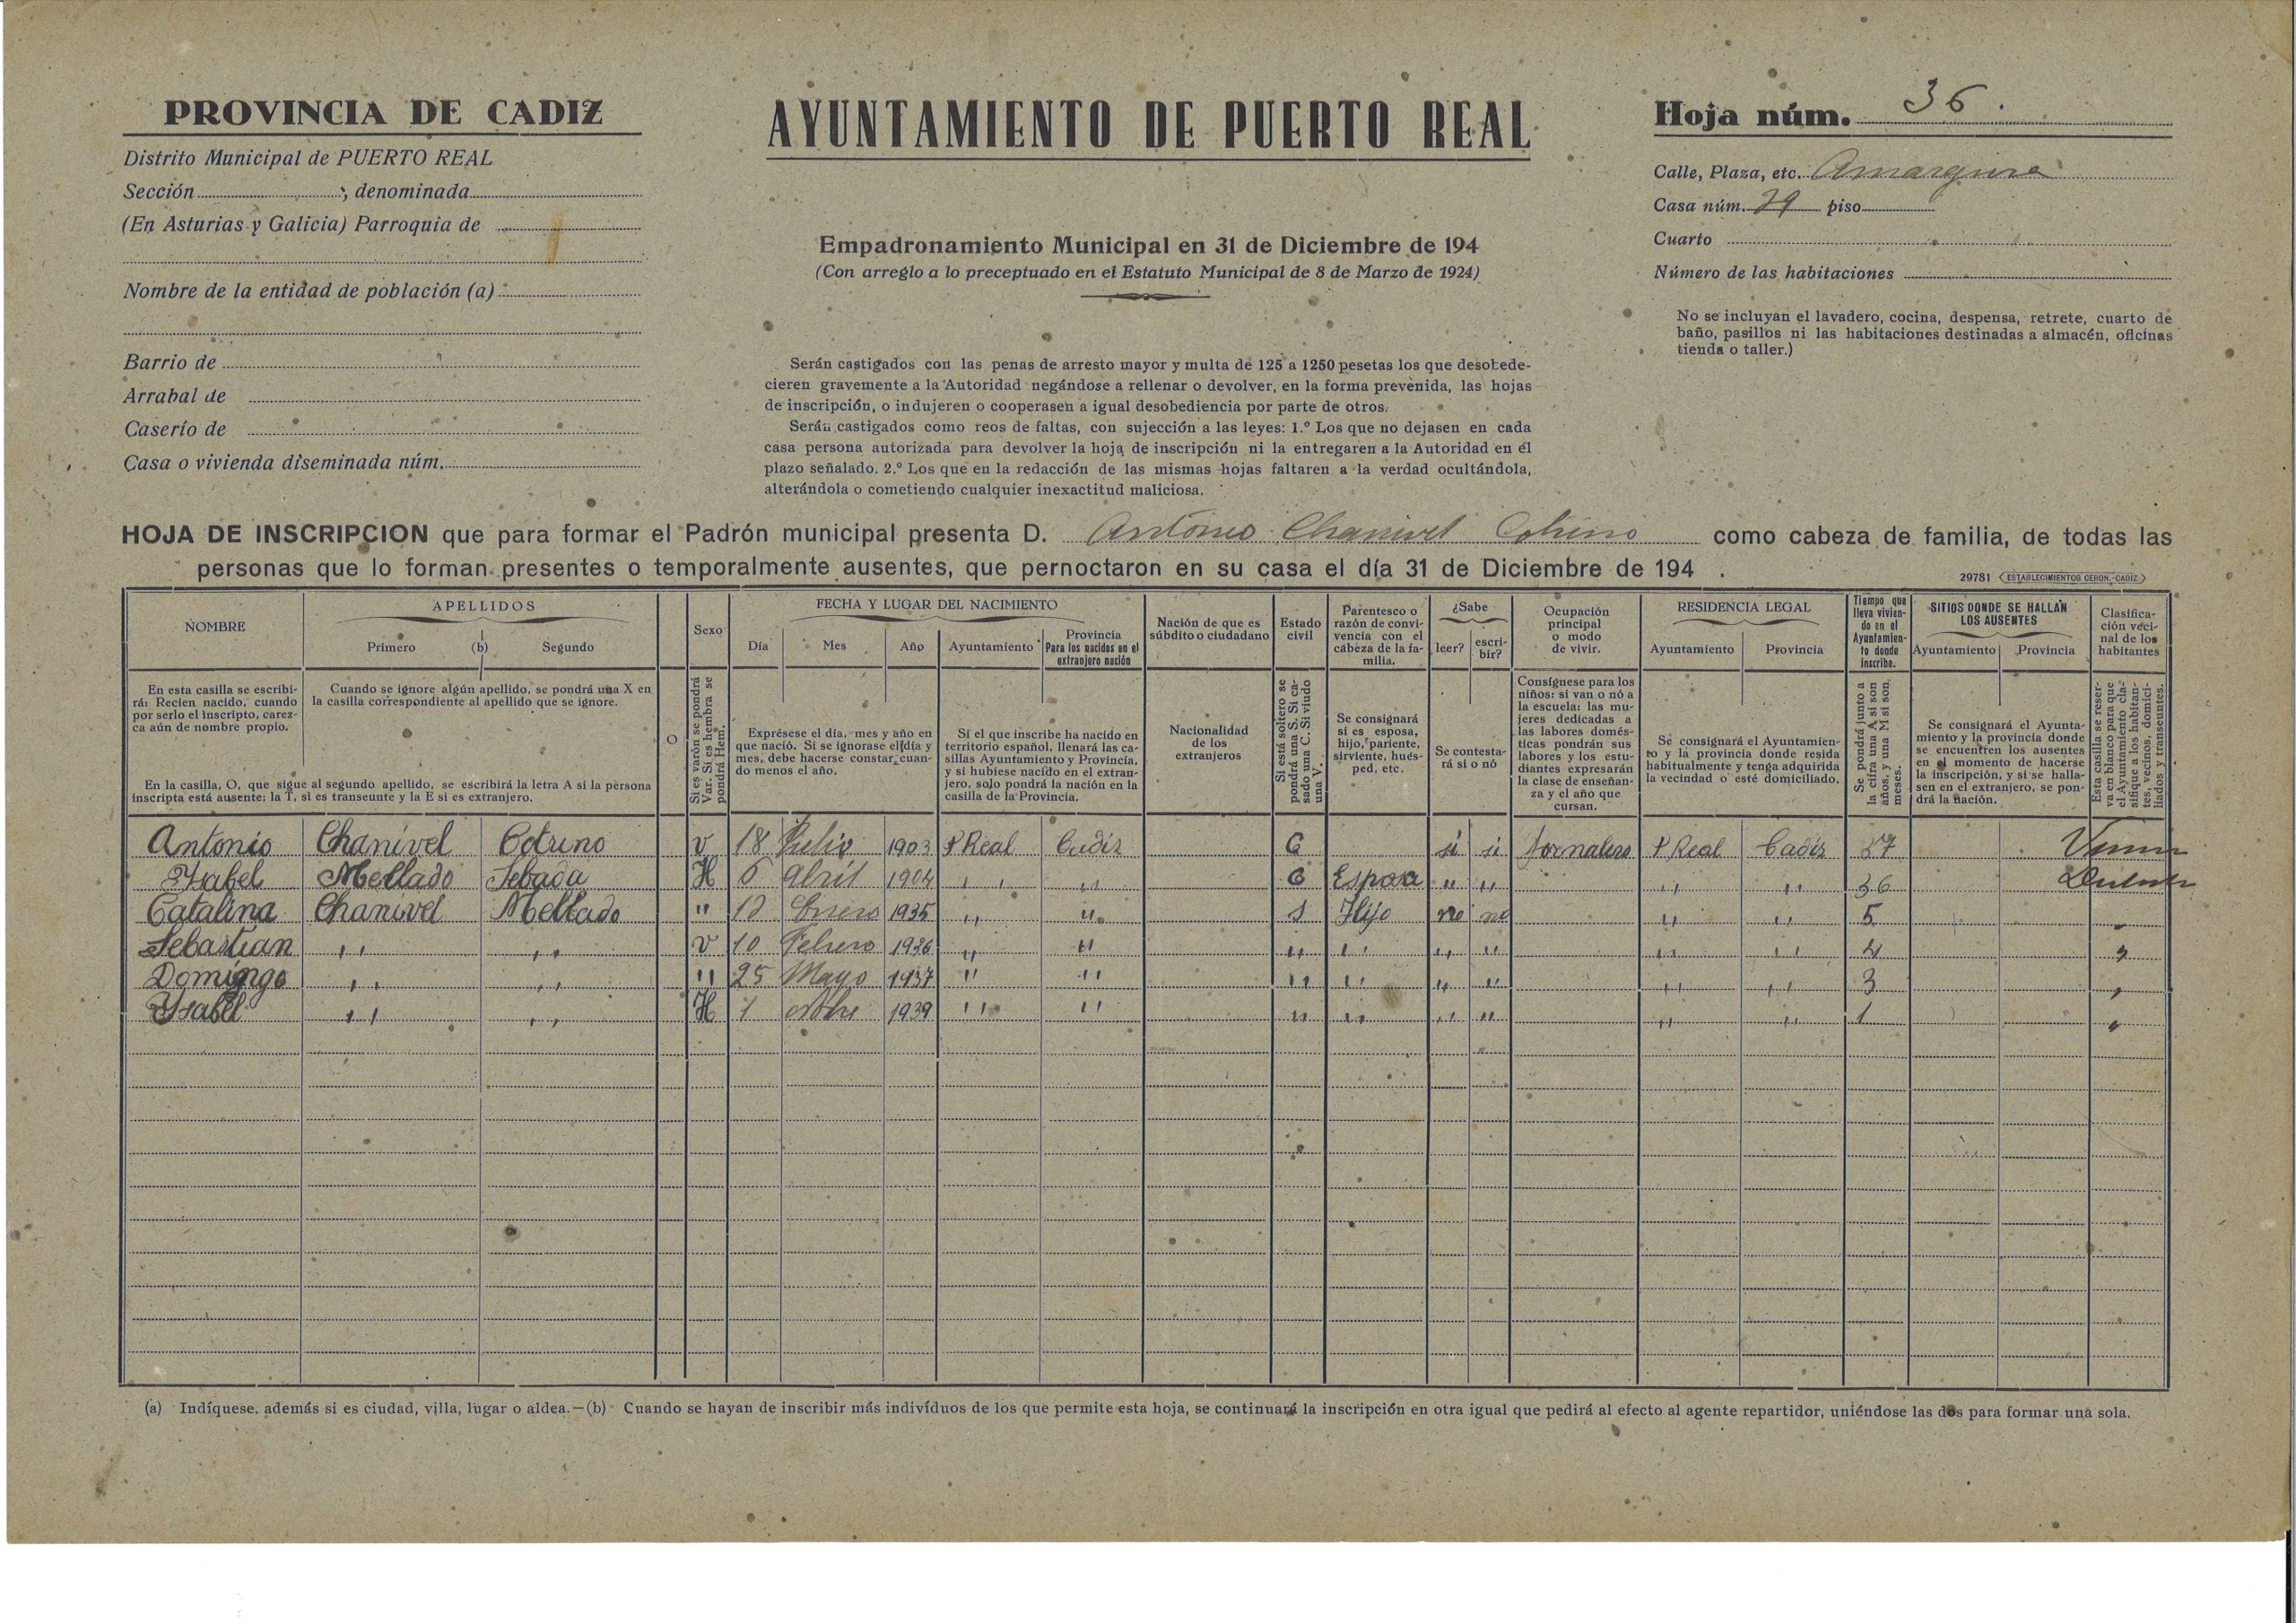 PROVINCIA DE CADIZ
Distrito Municipal de PUERTO REAL
Sección ; denominada
(En Asturias y Galicia) Parroquia de
Nombre de la entidad de población (a)
Barrio de
Arrabal de
Caserío de
Casa o vivienda diseminada núm.
AYUNTAMIENTO DE PUERTO REAL
Empadronamiento Municipal en 31 de Diciembre de 194
(Con arreglo a lo preceptuado en el Estatuto Municipal de 8 de Marzo de 1924)
Serán castigados con las penas de arresto mayor y multa de 125 a 1250 pesetas los que desobede-
cieren gravemente a la Autoridad negándose a rellenar o devolver, en la forma prevenida, las hojas
de inscripción, o indujeren o cooperasen a igual desobediencia por parte de otros.
Serán castigados como reos de faltas, con sujección a las leyes: 1.º Los que no dejasen en cada
casa persona autorizada para devolver la hoja de inscripción ni la entregaren a la Autoridad en él
plazo señalado. 2.º Los que en la redacción de las mismas hojas faltaren a la verdad ocultándola,
alterándola o cometiendo cualquier inexactitud maliciosa.
Hoja núm. 36.
Calle, Plaza, etc. Amargura
Casa núm. 29 piso
Cuarto
Número de las habitaciones
No se incluyan el lavadero, cocina, despensa, retrete, cuarto de
baño, pasillos ni las habitaciones destinadas a almacén, oficinas
tienda o taller.)
HOJA DE INSCRIPCION que para formar el Padrón municipal presenta D. Antonio Chanivel como cabeza de familia, de todas las
personas que lo forman presentes o temporalmente ausentes, que pernoctaron en su casa el día 31 de Diciembre de 194 .
29781 ESTABLECIMIENTOS CERON.-CADIZ
NOMBRE
APELLIDOS
Primero (b) Segundo
O
Sexo
FECHA Y LUGAR DEL NACIMIENTO
Día Mes Año Ayuntamiento
Provincia
Para los nacidos en el
extranjero nación
Nación de que es
súbdito o ciudadano
Estado
civil
Parentesco o
razón de convi-
vencia con el
cabeza de la fa-
milia.
¿Sabe
leer?
escri-
bir?
Ocupación
principal
o modo
de vivir.
RESIDENCIA LEGAL
Ayuntamiento Provincia
Tiempo que
lleva vivien-
do en el
Ayuntamien-
to donde
inscribe.
SITIOS DONDE SE HALLAN
LOS AUSENTES
Ayuntamiento Provincia
Clasifica-
ción veci-
nal de los
habitantes
En esta casilla se escribi-
rá: Recien nacido, cuando
por serlo el inscripto, carez-
ca aún de nombre propio.
Cuando se ignore algún apellido, se pondrá una X en
la casilla correspondiente al apellido que se ignore.
En la casilla, O, que sigue al segundo apellido, se escribirá la letra A si la persona
inscripta está ausente; la T, si es transeunte y la E si es extranjero.
Si es varón se pondrá
Var. Si es hembra se
pondrá Hem.
Exprésese el día, mes y año en
que nació. Si se ignorase el día y
mes, debe hacerse constar cuan-
do menos el año.
Si el que inscribe ha nacido en
territorio español, llenará las ca-
sillas Ayuntamiento y Provincia,
y si hubiese nacido en el extran-
jero, solo pondrá la nación en la
casilla de la Provincia.
Nacionalidad
de los
extranjeros
Si está soltero se
pondrá una S. Si ca-
sado una C. Si viudo
una V.
Se consignará
si es esposa,
hijo, pariente,
sirviente, hués-
ped, etc.
Se contesta-
rá si o nó
Consígnese para los
niños: si van o nó a
la escuela: las mu-
jeres dedicadas a
las labores domés-
ticas pondrán sus
labores y los estu-
diantes expresarán
la clase de enseñan-
za y el año que
cursan.
Se consignará el Ayuntamien-
to y la provincia donde resida
habitualmente y tenga adquirida
la vecindad o esté domiciliado.
Se pondrá junto a
la cifra una A si son
años, y una M si son
meses.
Se consignará el Ayunta-
miento y la provincia donde
se encuentren los ausentes
en el momento de hacerse
la inscripción, y si se halla-
sen en el extranjero, se pon-
drá la nación.
Esta casilla se reser-
va en blanco para que
el Ayuntamiento cla-
sifique a los habitan-
tes, vecinos, domici-
liados y transeuntes.
Antonio Chanivel Cotrino V 18 Julio 1903 P Real Cadiz C si si Jornalero P Real Cadiz 37
Isabel Mellado Sebada H 6 Abril 1904 " " C Esposa " " " " 36
Catalina Chanivel Mellado " Enero 1935 " " S Hijo no no " " 5
Sebastian " " V 10 Febrero 1936 " " " " " " " " 4 "
Domingo " " " 25 Mayo 1937 " " " " " " " " 3 "
Ysabel " " H 1 1939 " " " " " " " " 1 "
(a) Indíquese. además si es ciudad, villa, lugar o aldea.—(b) Cuando se hayan de inscribir más indivíduos de los que permite esta hoja, se continuará la inscripción en otra igual que pedirá al efecto al agente repartidor, uniéndose las dos para formar una sola.